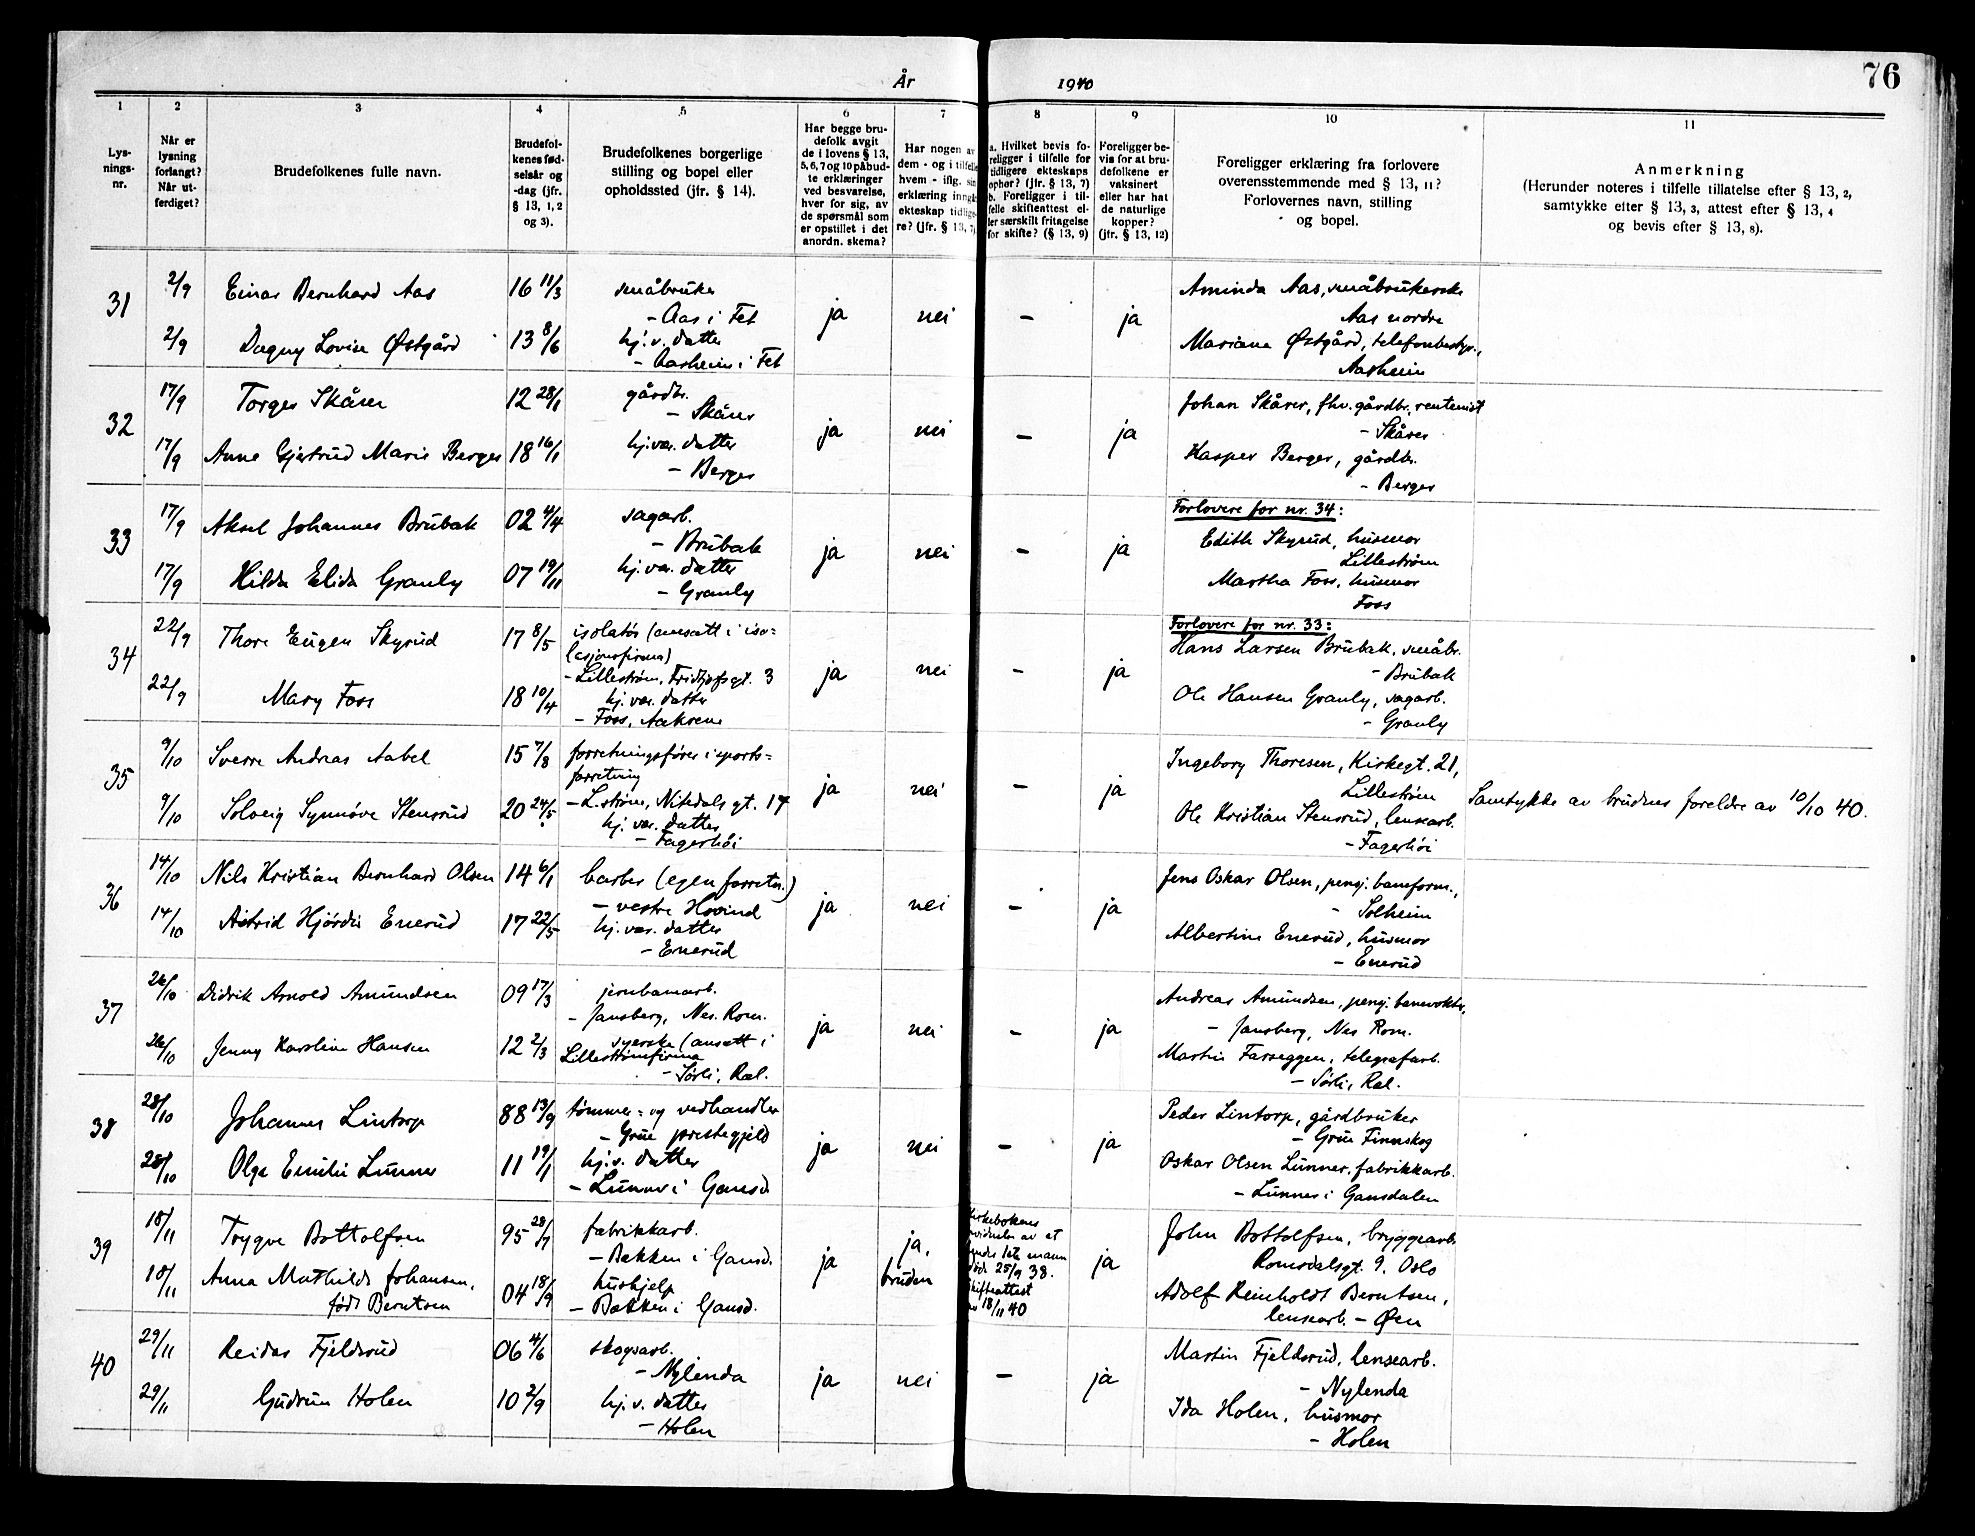 76
År 1940
1 2 3 4 5 6 7 8 9 10 11
Lys-
nings-
nr.
Når er
lysning
forlangt?
Når ut-
ferdiget?
Brudefolkenes fulle navn.
Brudefol-
kenes fød-
selsår og
-dag (jfr.
§ 13, 1, 2
og 3).
Brudefolkenes borgerlige
stilling og bopel eller
opholdssted (jfr. § 14).
Har begge bru-
defolk avgit
de i lovens § 13,
5, 6, 7 og 10 påbud-
te erklæringer
ved besvarelse,
hver for sig, av
de spørsmål som
er opstillet i det
anordn. skema?
Har nogen av
dem - og i tilfelle
hvem - iflg. sin
erklæring inngåt
ekteskap tidlige-
re? (jfr. § 13, 7)
a. Hvilket bevis fo-
religger i tilfelle for
tidligere ekteskaps
ophør? (jfr. § 13, 7)
b. Foreligger i til-
felle skifteattest el-
ler særskilt fritagelse
for skifte? (§ 13, 9)
Foreligger be-
vis for at bru-
defolkene er
vaksinert
eller har hat
de naturlige
kopper?
(jfr. § 13, 12)
Foreligger erklæring fra forlovere
overensstemmende med § 13, 11?
Forlovernes navn, stilling
og bopel.
Anmerkning
(Herunder noteres i tilfelle tillatelse efter § 13, 2,
samtykke efter § 13, 3, attest efter § 13, 4
og bevis efter § 13, 8).
31
2/9 Einar Bernhard Aas 16 11/3 småbruker
- Aas i Fet
2/9 Dagny Lovise Østgård 13 8/6 hj. v. datter
- Aasheim i Fet
ja nei - ja
Aminda Aas, småbrukerske
Aas nordre
Mariane Østgård, telefonbestyr.,
Aasheim
32
17/9 Torger Skårer 12 28/1 gårdbr.
- Skårer
17/9 Anne Gjertrud Marie Berger 18 16/1 hj.vær. datter
- Berger
ja nei - ja
Johan Skårer, fhv. gårdbr., rentenist
- Skårer
Kasper Berger, gårdbr.
- Berger
33
17/9 Aksel Johannes Brubak 02 4/4 sagarb.
- Brubak
17/9 Hilda Elida Granly 07 19/11 hj. vær. datter
- Granly
ja nei - ja
Forlovere for nr. 34:
Edith Skyrud, husmor
Lillestrøm
Martha Foss, husmor
Foss
34
22/9 Thore Eugen Skyrud 17 8/5 isolatør (ansatt i iso-
lasjonsfirma)
- Lillestrøm, Fridtjofsgt. 3
22/9 Mary Foss 18 10/4 hj. vær. datter
- Foss, Aakrene
ja nei - ja
Forlovere for nr. 33:
Hans Larsen Brubak, småbr.
- Brubak
Ole Hansen Granly, sagarb.
- Granly
35
9/10 Sverre Andreas Aabel 15 7/8 forretningsfører i sports-
forretning
- L.strøm, Nitedals gt. 17
9/10 Solveig Synnøve Stensrud 20 24/5 hj. vær. datter
- Fagerhøi
ja nei - ja
Ingeborg Thoresen, Kirkegt. 21,
Lillestrøm
Ole Kristian Stensrud, lensearb.
- Fagerhøi
Samtykke av brudens foreldre av 10/10 40.
36
14/10 Nils Kristian Bernhard Olsen 14 6/1 barber (egen forretn.)
- vestre Hovind
14/10 Astrid Hjørdis Enerud 17 22/5 hj. vær. datter
- Enerud
ja nei - ja
Jens Oskar Olsen, pensj. baneform.,
- Solheim
Albertine Enerud, husmor
- Enerud
37
26/10 Didrik Arnold Amundsen 09 17/3 jernbanearb.
- Jansberg, Nes. Rom.
26/10 Jenny Karoline Hansen 12 2/3 syerske (ansatt i
Lillestrømfirma
- Sørli, Ræl.
ja nei - ja
Andreas Amundsen, pensj. banevokter,
- Jansberg, Nes Rom.
Martin Farseggen, telegrafarb.
- Sørli, Ræl.
38
28/10 Johannes Lintorp 88 13/9 tømmer- og vedhandler
- Grue prestegjeld
28/10 Olga Emilie Lunner 11 19/1 hj. v. datter
- Lunner i Gansd.
ja nei - ja
Peder Lintorp, gårdbruker
- Grue Finnskog
Oskar Olsen Lunner, fabrikkarb.
- Lunner i Gansdalen
39
18/11 Trygve Bottolfsen 95 28/7 fabrikkarb.
- Bakken i Gansd.
18/11 Anna Mathilde Johansen,
født Berntsen 04 18/9 hushjelp
- Bakken i Gansd.
ja ja,
bruden
død 25/9 38.
18/11 40
ja
John Bottolfsen, bryggearb.
Romsdalsgt. 9. Oslo
Adolf Reinholdt Berntsen,
lensearb. - Øen
40
29/11 Reidar Fjeldsrud 06 4/6 skogsarb.
- Nylenda
29/11 Gudrun Holen 10 2/9 hj. v. datter
- Holen
ja nei - ja
Martin Fjeldsrud, lensearb.
- Nylenda
Ida Holen, husmor
- Holen